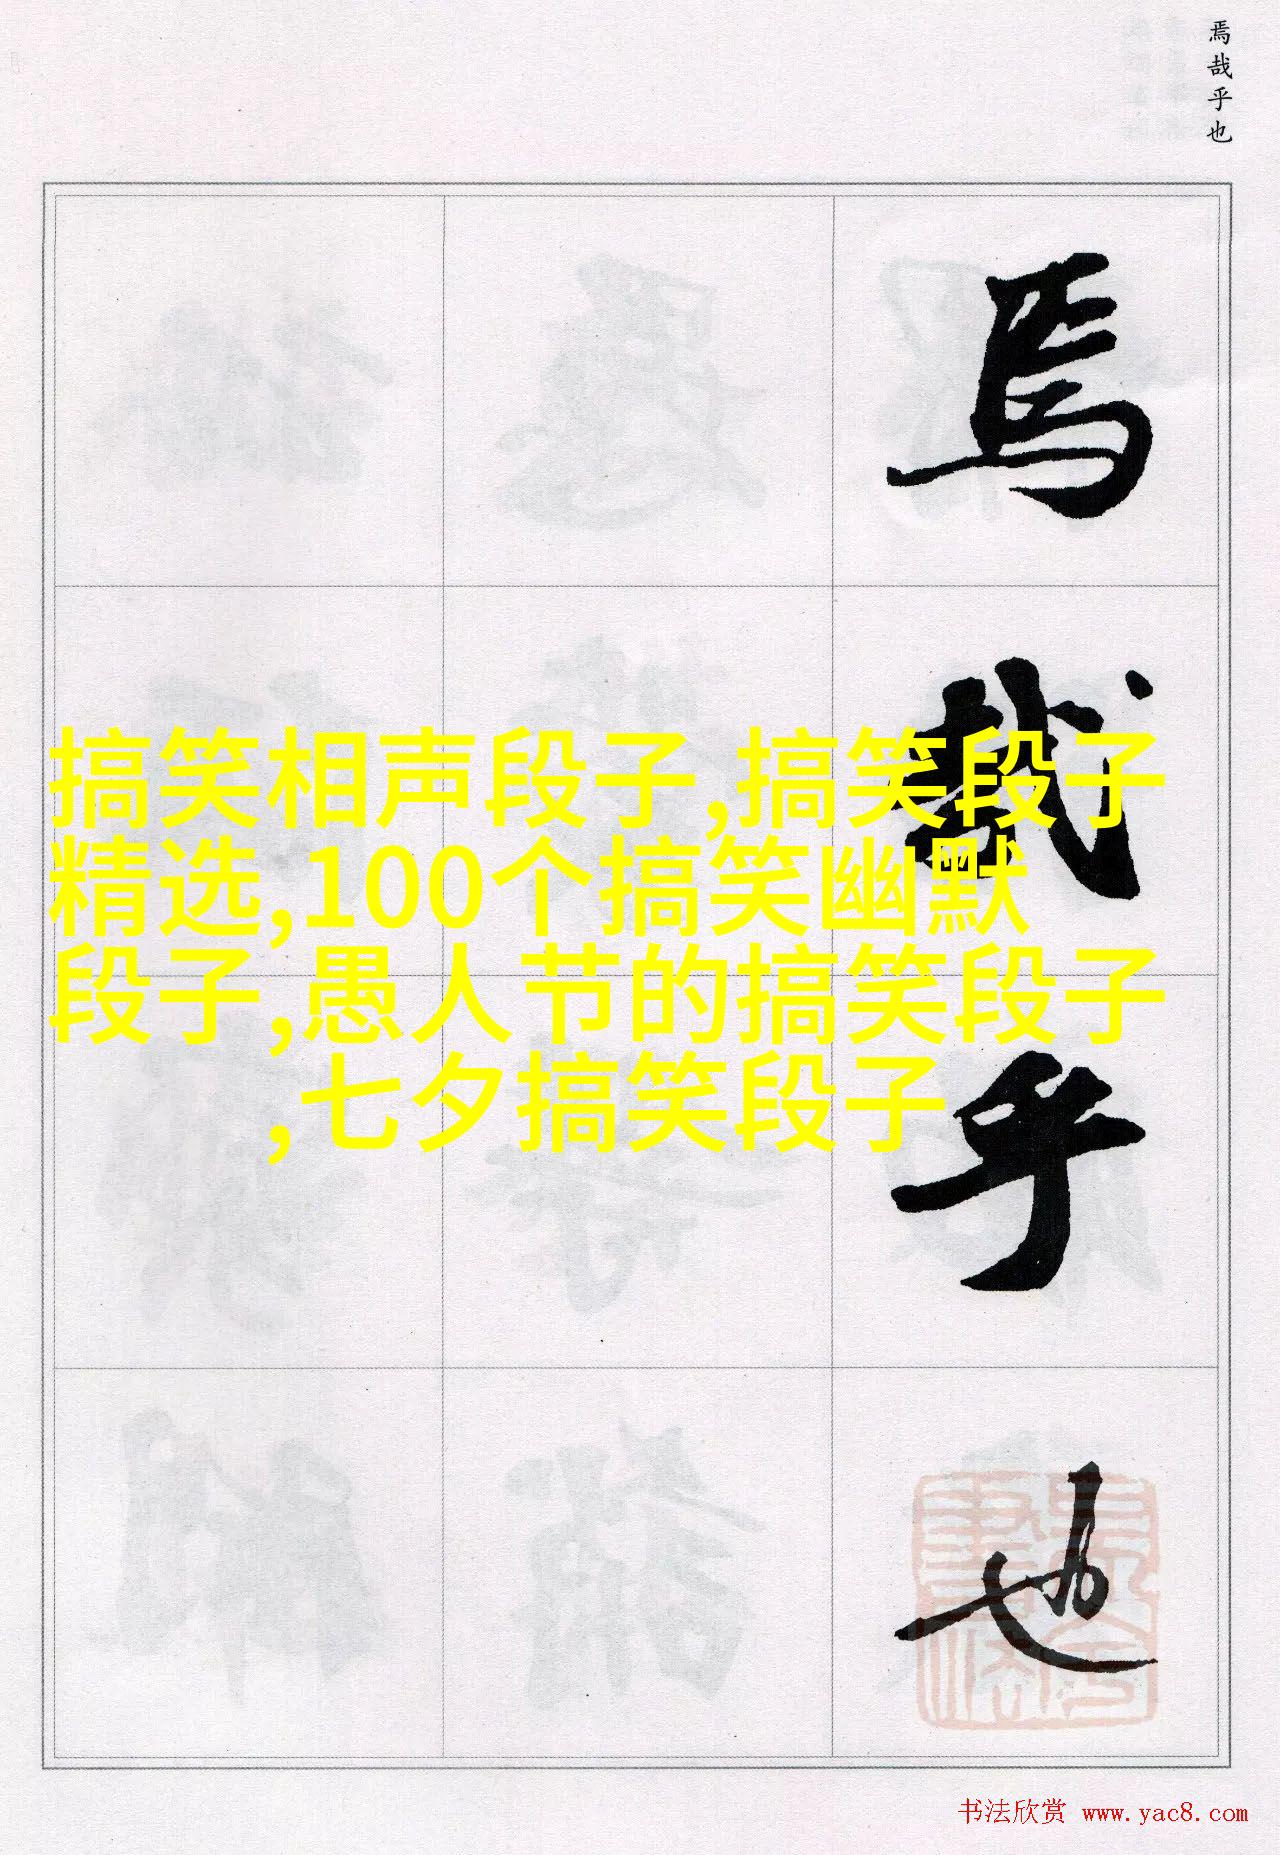 焉哉乎也
焉
哉
乎
也
搞笑相声段子,搞笑段子
精选,100个搞笑幽默
段子,愚人节的搞笑段子
,七夕搞笑段子
书法欣赏 www.yac8.com